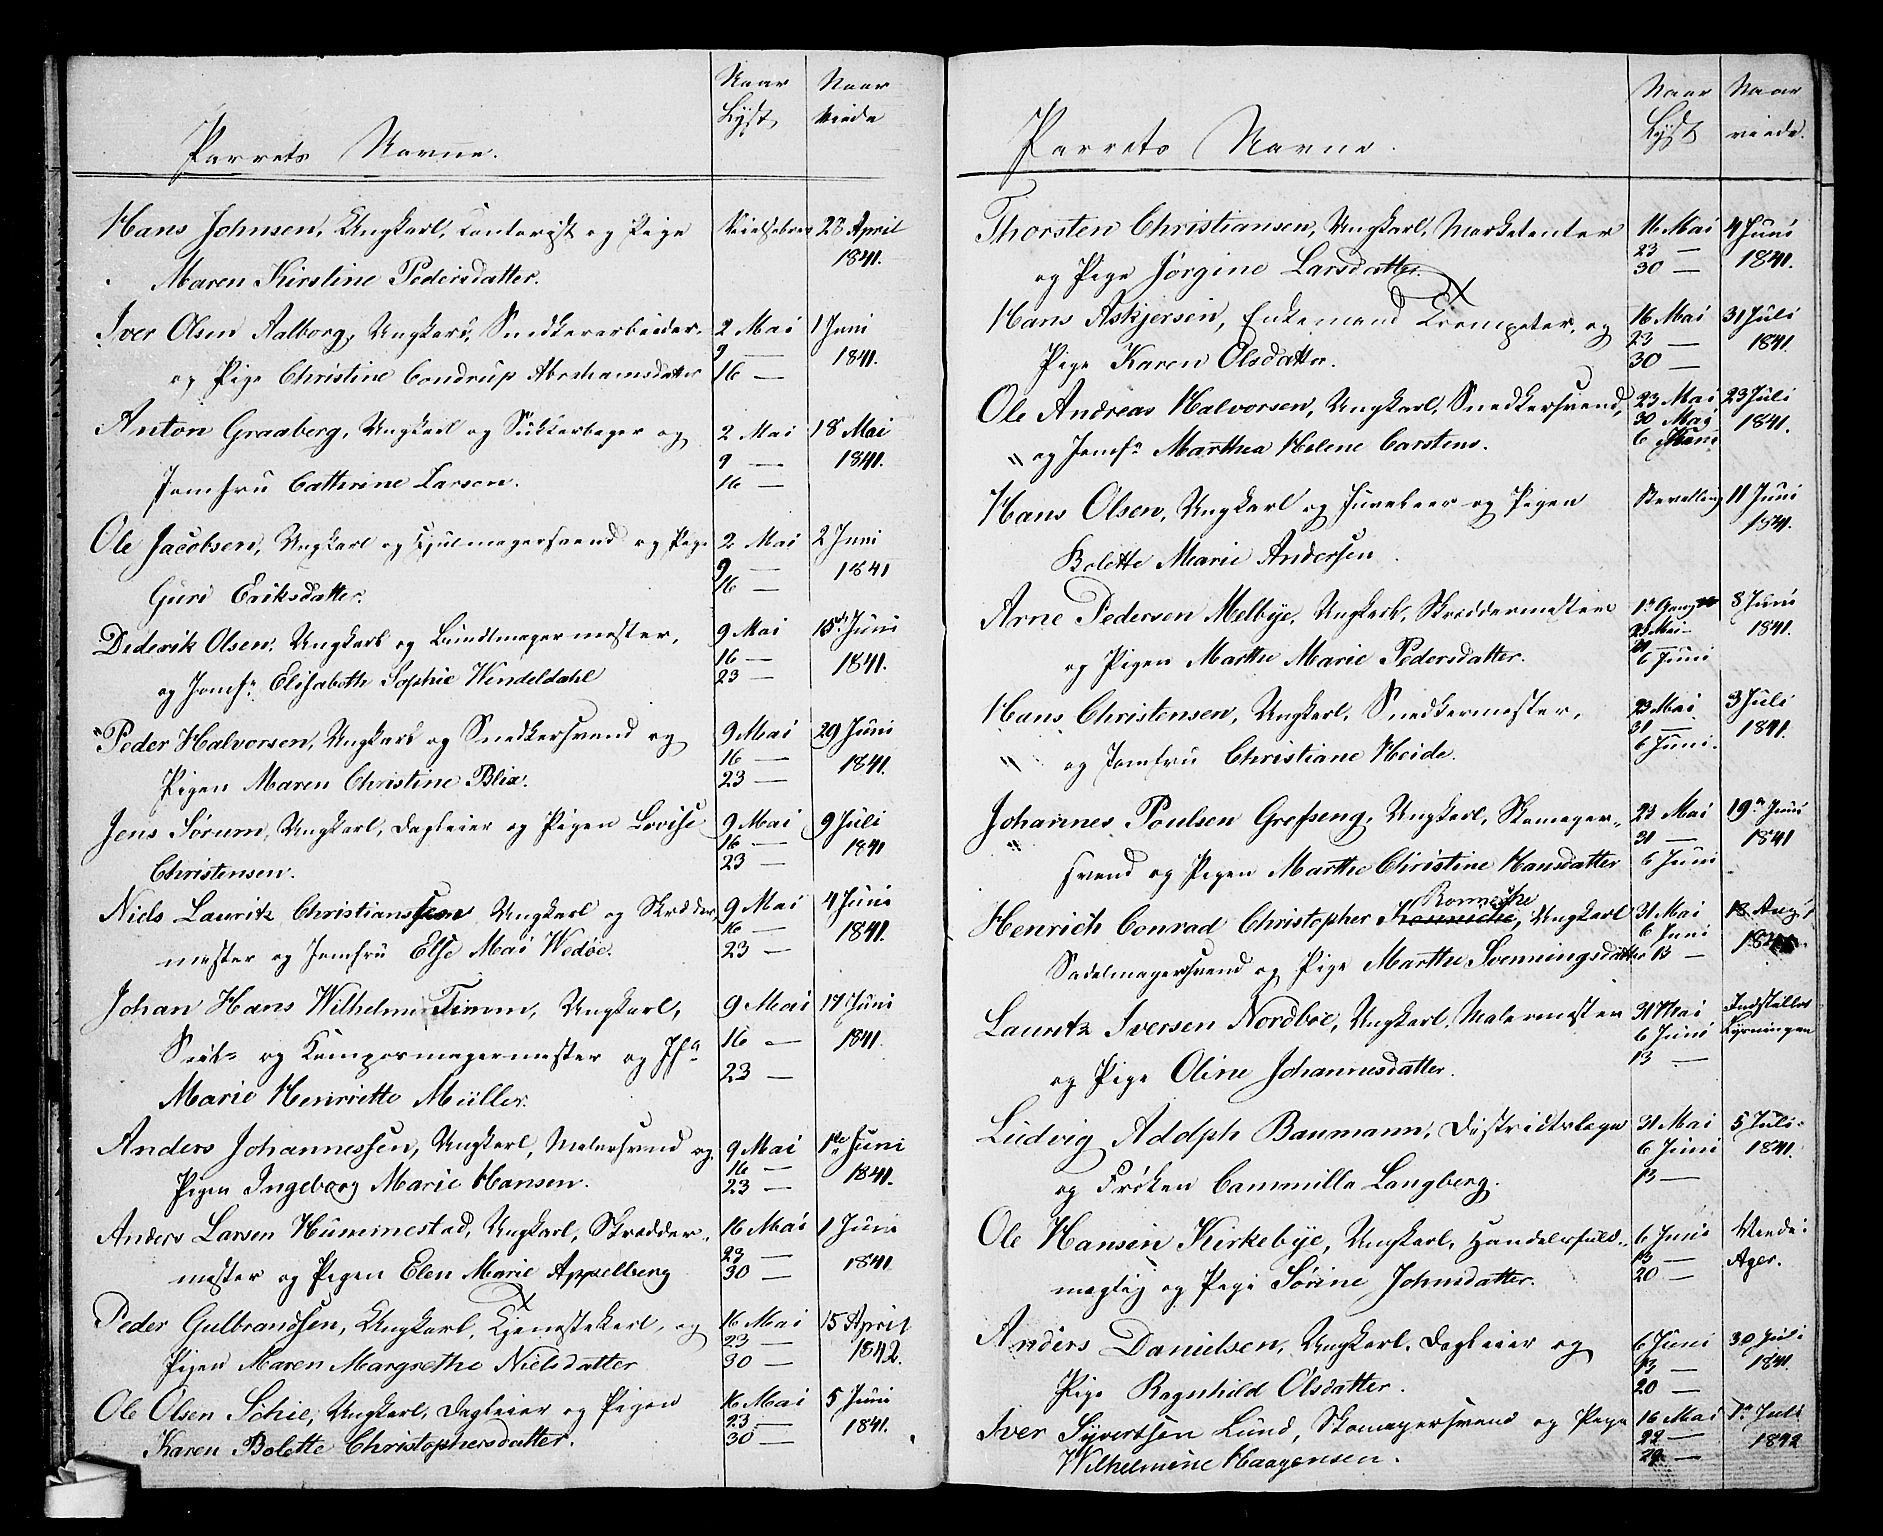 Naar Naar
Lyst viede
Parrets Navne.
Hans Johnsen, Ungkarl, Contorist og Pige 23 April
Maren Kirstine Pedersdatter. 1841.
Iver Olsen Aalborg, Ungkarl, Snedkerarbeider 2 Mai 1 Juni
9 — 1841.
og Pige Christine Condrup Abrahamsdatter 16 —
Anton Graaberg, Ungkarl og Sukkerbager og 2 Mai 18 Mai
9 — 1841.
Jomfru Cathrine Larsen. 16 —
Ole Jacobsen, Ungkarl og Hjulmagersvend og Pige 2 Mai 2 Juni
9 — 1841
Guri Eriksdatter. 16 —
Diderik Olsen, Ungkarl og Bundtmagermester, 9 Mai 15de Juni
16 — 1841.
og Jomfr Elisabeth Sophie Wendeldahl 23 —
Peder Halvorsen, Ungkarl og Snedkersvend og 9 Mai 29 Juni
16 — 1841.
Pigen Maren Christine Blix. 23 —
Jens Sørum, Ungkarl, Dagleier og Pigen Lovise 9 Mai 9 Juli
16 — 1841
Christensen. 23 —
Niels Lauritz Christianssen Ungkarl og Skrædder 9 Mai 4 Juni
16 — 1841.
mester og Jomfru Else Mai Wedøe. 23 —
Johan Hans Wilhelm Timm, Ungkarl, 9 Mai 17 Juni
og Kompasmagermester og Jfr 16 — 1841.
23 —
Marie Henriette Müller.
Anders Johannessen, Ungkarl, Malersvend og 9 Mai 1ste Juni
16 — 1841.
Pigen Ingeborg Marie Hansen. 23 —
Anders Larsen Hummestad, Ungkarl, Skrædder 16 Mai 1 Juni
23 — 1841
mester og Pigen Elen Marie Appelberg 30 —
Peder Gulbrandsen, Ungkarl, Tjenestekarl, og 16 Mai 15 April
23 — 1842.
Pigen Maren Margrethe Nielsdatter 30 —
Ole Olsen Schie, Ungkarl, Dagleier og Pigen 16 Mai 5 Juni
23 — 1841.
Karen Bolette Christophersdatter. 30 —
Naar Naar
Lyst viede.
Parrets Navne.
Thorsten Christiansen, Ungkarl, Marketenter 16 Mai 4 Juni
23 — 1841.
og Pige Jørgine Larsdatter. 30 —
Hans Askjersen, Enkemand Trompeter, og 16 Mai 31 Juli
23 — 1841.
Pige Karen Olsdatter. 30 —
Ole Andreas Halvorsen, Ungkarl, Snedkersvend, 23 Mai 23 Juli
30 Mai 1841.
" og Jomfr Marthea Helene Carstens. 6 Juni
Hans Olsen, Ungkarl og Juveleer og Pigen Bevilling 11 Juni
1841.
Bolette Marie Andersen.
Arne Pedersen Melbye, Ungkarl, Skræddermester 1e Gang 8 Juni
23 Mai — 1841.
31 —
og Pigen Marthe Marie Pedersdatter. 6 Juni
Hans Christensen, Ungkarl, Snedkermester, 23 Mai 3 Juli
31 — 1841.
" og Jomfru Christiane Heide. 6 Juni.
Johannes Poulsen Grefseng, Ungkarl, Skomager 23 Mai 19 Juni
" 31 — 1841
svend og Pigen Marthe Christine Hansdatter 6 Juni
Romeike
Henrich Conrad Christopher, Ungkarl 31 Mai 18 Aug
6 Juni
Sadelmagersvend og Pige Marthe Svenningsdatter 13 —
Lauritz Iversen Nordbøe, Ungkarl, Malermester 31 Mai Indstillet
6 Juni Lysningen
og Pige Oline Johannesdatter. 13 —
Ludvig Adolph Baumann, Districtslæge 31 Mai 5 Juli
6 Juni 1841.
og Frøken Cammilla Langberg. 13 —
Ole Hansen Kirkebye, Ungkarl, Handelsfuld- 6 Juni Viede i
13 — Ager.
mægtig og Pige Sørine Johnsdatter. 20 —
Anders Danielsen, Ungkarl, Dagleier og 6 Juni 30 Juli
13 — 1841.
Pige Ragnhild Olsdatter. 20 —
Iver Syvertsen Lund, Skomagersvend og Pige 16 Mai Juli
22 — 1842
Wilhelmine Haagensen. 29 —